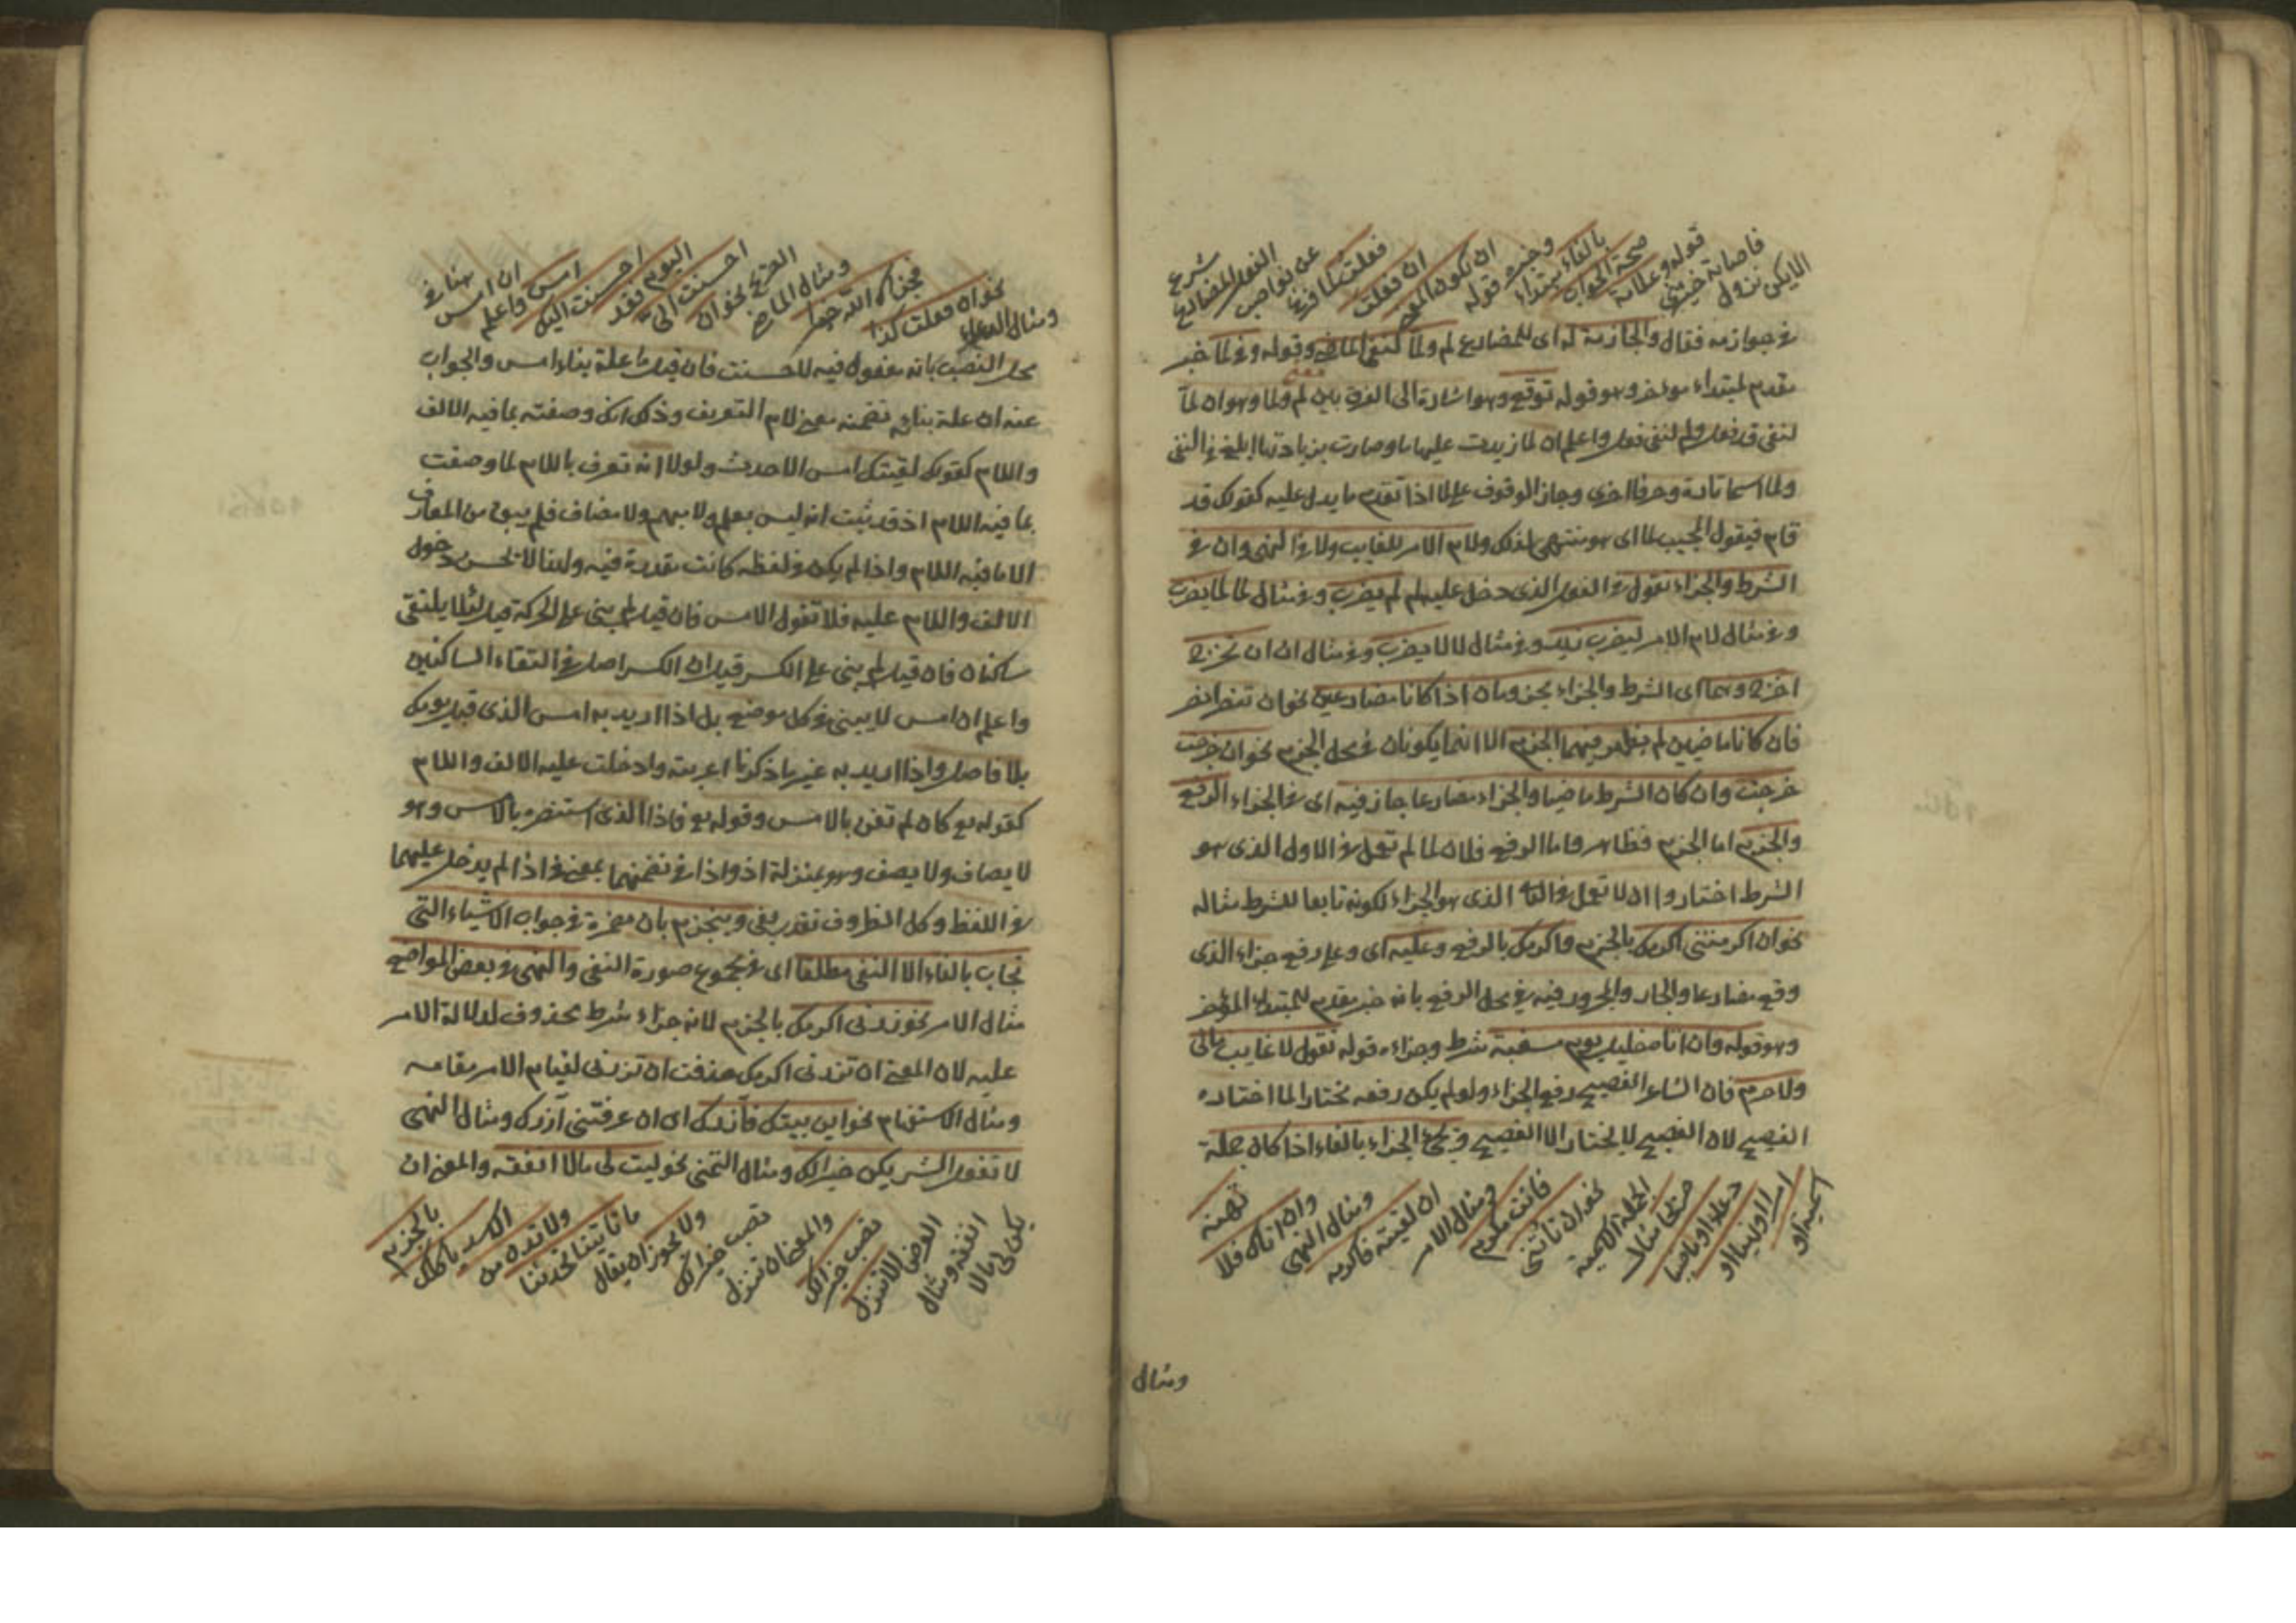 الا يكن نزول
فاصابة خيرتني
قوله وعلامة
صحة الجواب
بالفاء مبتداء
وخبره قوله
ان تكون المعنى
ان فعلت
فعلت فلما فرغ
عن نواصب
الفعل المضارع
شرع
في جوازمه فقال والجازمة له اى للمضارع لم ولما لنفى الماضى وقوله وفي لما خبر
مقدم لمبتداء مؤخر وهو قوله توقع وهو اشارة الى الفرق بين لم ولما وهو ان لما
لنفى قد فعل ولم لنفى فعل واعلم ان لما زيدت عليها ما وصارت بزيادتها ابلغ في النفى
ولما اسما تارة وحرفا اخرى وجاز الوقوف على لما اذا تقدم ما يدل عليه كقولك قد
قام فيقول المجيب لما اى هو منتهى لذلك ولام الامر للغايب ولا في النهى وان في
الشرط والجزاء تقول في الفعل الذى دخل عليه لم لم يضرب وفي مثال لما لما يضرب
وفي مثال لام الامر ليضرب زيد وفي مثال لا لا يضرب وفي مثال ان ان تخرج
اخرج وهما اى الشرط والجزاء مجزومان اذا كانا مضارعين نحو ان تنصر انصر
فان كانا ماضيين لم يظهر فيهما الجزم الا انهما يكونان في محل الجزم نحو ان خرجت
خرجت وان كان الشرط ماضيا والجزاء مضارعا جاز فيه اى في الجزاء الرفع
والجزم اما الجزم فظاهر واما الرفع فلان لما لم تعمل في الاول الذى هو
الشرط اختاروا ان لا تعمل في الثانى الذى هو الجزاء لكونه تابعا للشرط مثاله
نحو ان اكرمتنى اكرمك بالجزم واكرمك بالرفع وعليه اى وعلى رفع جزاء الذى
وقع مضارعا والجار والمجرور فيه في محل الرفع بانه خبر مقدم للمبتداء المؤخر
وهو قوله وان اتاه خليل يوم مسغبة شرط وجزاءه قوله تقول لا غايب مالى
ولا حرم فان الشاعر الفصيح رفع الجزاء ولو لم يكن رفعه مختارا لما اختاره
الفصيح لان الفصيح لا يختار الا الفصيح وتجئ الجزاء بالفاء اذا كان جملة
اسمية او
امرا او نهيا او
دعاء او ماضيا
صريحا مثال
الجملة الاسمية
نحو ان تاتنى
فانت مكرم
ومثال الامر
ان لقيته فاكرمه
ومثال النهى
وان اتاك فلا
تهنه
ومثال
ومثال الدعاء
نحو ان فعلت كذا
فجزاك الله خيرا
ومثال الماضى
الصريح نحو ان
احسنت الى
اليوم فقد
احسنت اليك
امس واعلم
ان امس
هنا في
محل النصب بانه مفعول فيه لاحسنت فان قيل ما علة بناء امس والجواب
عنه ان علة بنائه تضمنه معنى لام التعريف وذلك انك وصفته بما فيه الالف
واللام كقولك لقيتك امس الاحدث ولولا انه تعرف باللام لما وصفت
بما فيه اللام اذ قد ثبت انه ليس بعلم ولا مبهم ولا مضاف فلم يبق من المعارف
الا ما فيه اللام واذا لم يكن في لفظه كانت مقدرة فيه ولهذا لا يحسن دخول
الالف واللام عليه فلا تقول الامس فان قيل لم بنى على الحركة قيل لئلا يلتقى
ساكنان فان قيل لم بنى على الكسر قيل ان الكسر اصل في التقاء الساكنين
واعلم ان امس لا يبنى في كل موضع بل اذا اريد به امس الذى قبل يومك
بلا فاصل واذا اريد به غير ما ذكرنا اعربته وادخلت عليه الالف واللام
كقوله تع كان لم تغن بالامس وقوله تع فاذا الذى استنصره بالامس وهو
لا يضاف ولا يصف وهو بمنزلة اذ واذا في تضمنهما بمعنى في اذا لم يدخل عليهما
في اللفظ وكل الظروف تقدر بفى وينجزم بان مضمرة في جواب الاشياء التى
تجاب بالفاء الا النفى مطلقا اى في مجموع صورة النفى والنهى في بعض المواضع
مثال الامر نحو زرنى اكرمك بالجزم لانه جزاء شرط محذوف لدلالة الامر
عليه لان المعنى ان تزرنى اكرمك حذفت ان تزرنى لقيام الامر مقامه
ومثال الاستفهام نحو اين بيتك فازرك اى ان عرفتنى ازرك ومثال النهى
لا تفعل الشر يكن خيرا لك ومثال التمنى نحو ليت لى مالا انفقه والمعنى ان
يكن لى مالا
انفقه ومثال
العرض الا تنزل
تصب خيرا لك
والمعنى ان تنزل
تصب خيرا لك
ولا يجوز ان يقال
ما تاتينا تحدثنا
ولا تدن من
الاسد ياكلك
بالجزم